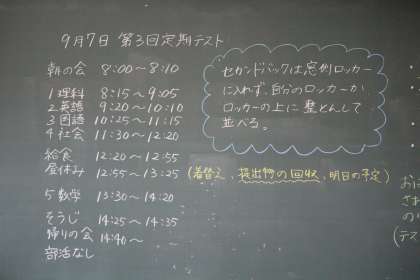 9月7日 第3回定期テスト
朝の会 8:00〜8:10
1 理科 8:15〜9:05
2 英語 9:20〜10:10
3 国語 10:25〜11:15
4 社会 11:30〜12:20
給食 12:20〜12:55
昼休み 12:55〜13:25 (着替え、提出物の回収、明日の予定)
5 数学 13:30〜14:20
そうじ 14:25〜14:35
帰りの会 14:40〜
部活なし
セカンドバックは窓側ロッカー
に入れず、自分のロッカーか
ロッカーの上に整とんして
並べる。
お
され
の
(テス